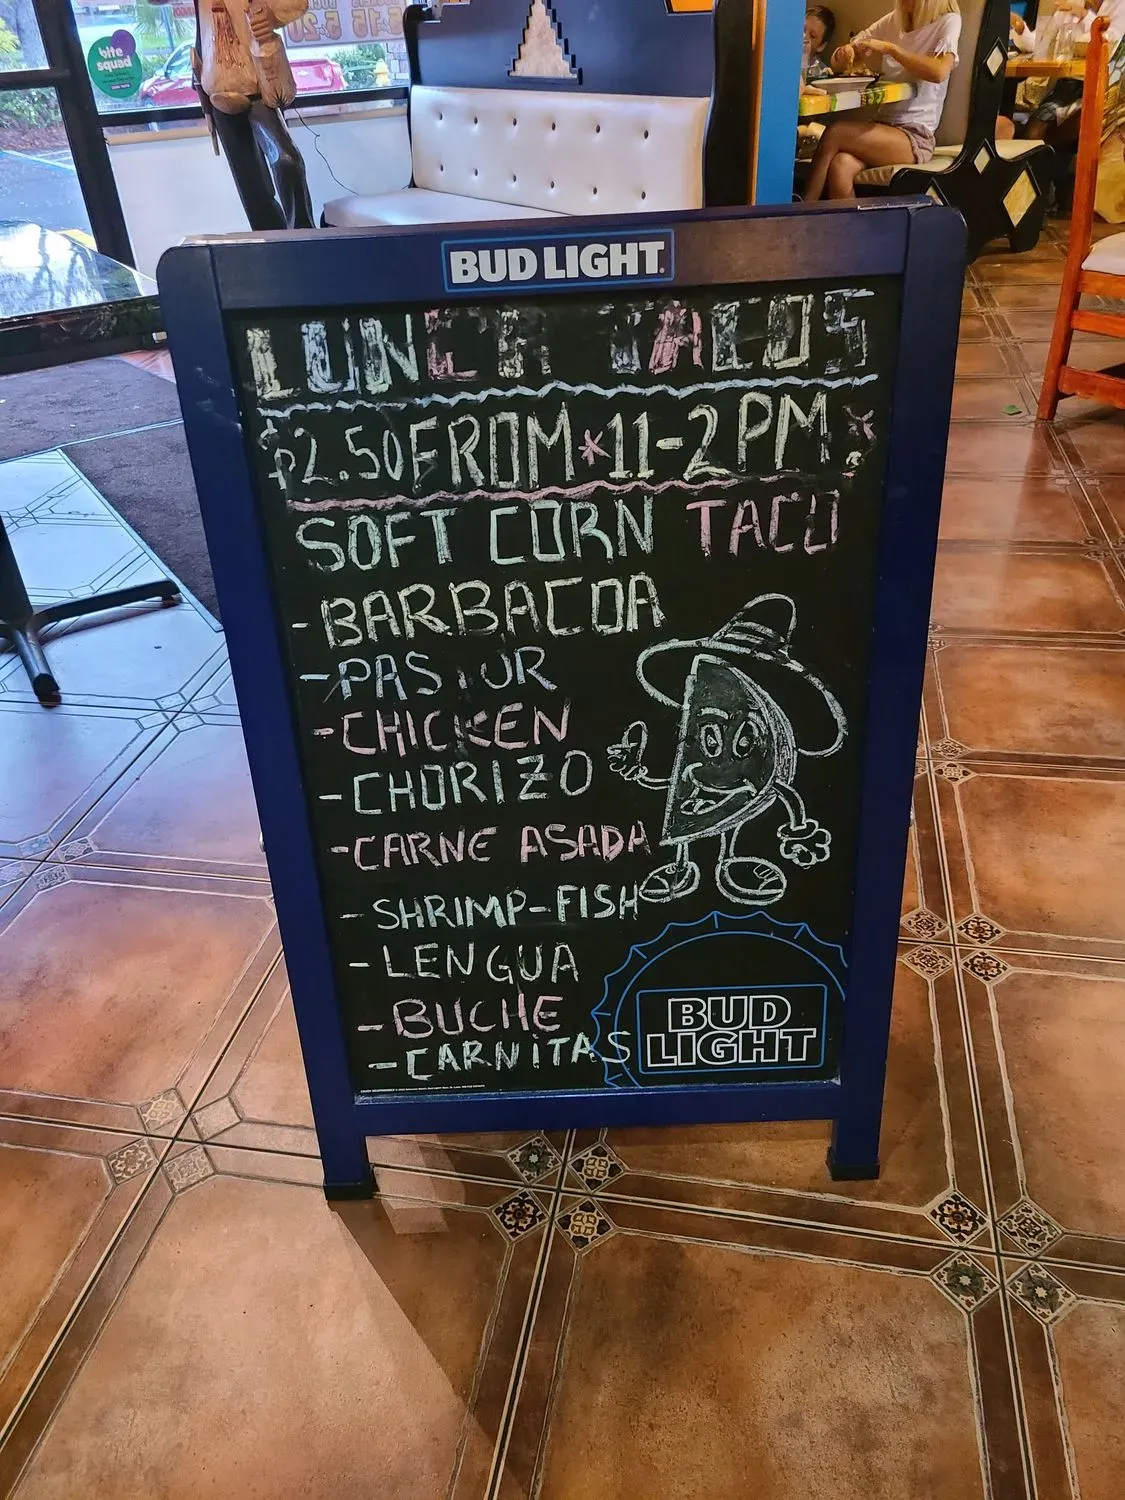 bite
squad
BUD LIGHT
LUNCH TACOS
$2.50 FROM * 11-2 PM
SOFT CORN TACO
- BARBACOA
- PASTOR
- CHICKEN
- CHORIZO
- CARNE ASADA
- SHRIMP-FISH
- LENGUA
- BUCHE
- CARNITAS
BUD
LIGHT